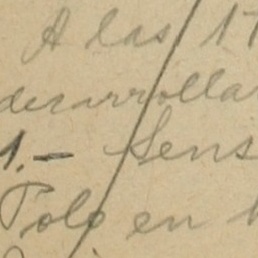 A las 17
desarrolla
1.- Sens
Polo en